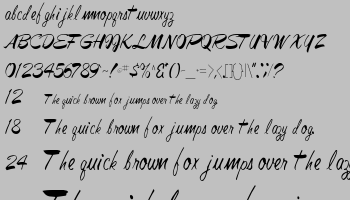 abcdefghijkl mnopqrst uvwxyz
ABCDEFGHIJKLMNOPQRSTUVWXYZ
0123456789
12 The quick brown fox jumps over the lazy dog.
18 The quick brown fox jumps over the lazy dog.
24 The quick brown fox jumps over the laz